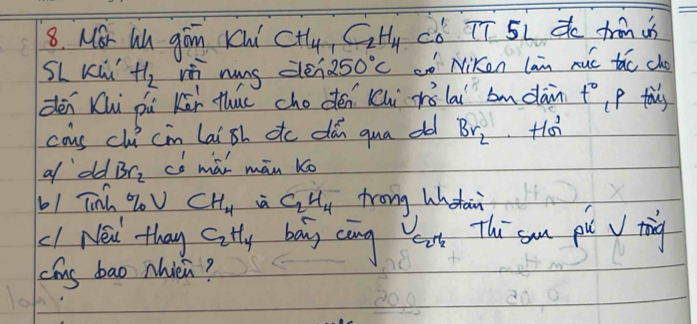 8. Một hh gồm khí CH4, C2H4 có TT 5L đc trộn với
5L khí H2 rồi nung đến 250°C có Niken làm xúc tác cho
đến khi pứ kết thúc cho đến khi trở lại ban đầu t°, p tổng
cộng chỉ còn lại 8h đc dẫn qua dd Br2. Hỏi
a/ dd Br2 có mất màu ko
b/ Tính %V CH4 và C2H4 trong hh đầu
c/ Nếu thay C2H4 bằng cùng V C2H2 thì sau pứ V tổng
cộng bao nhiêu?